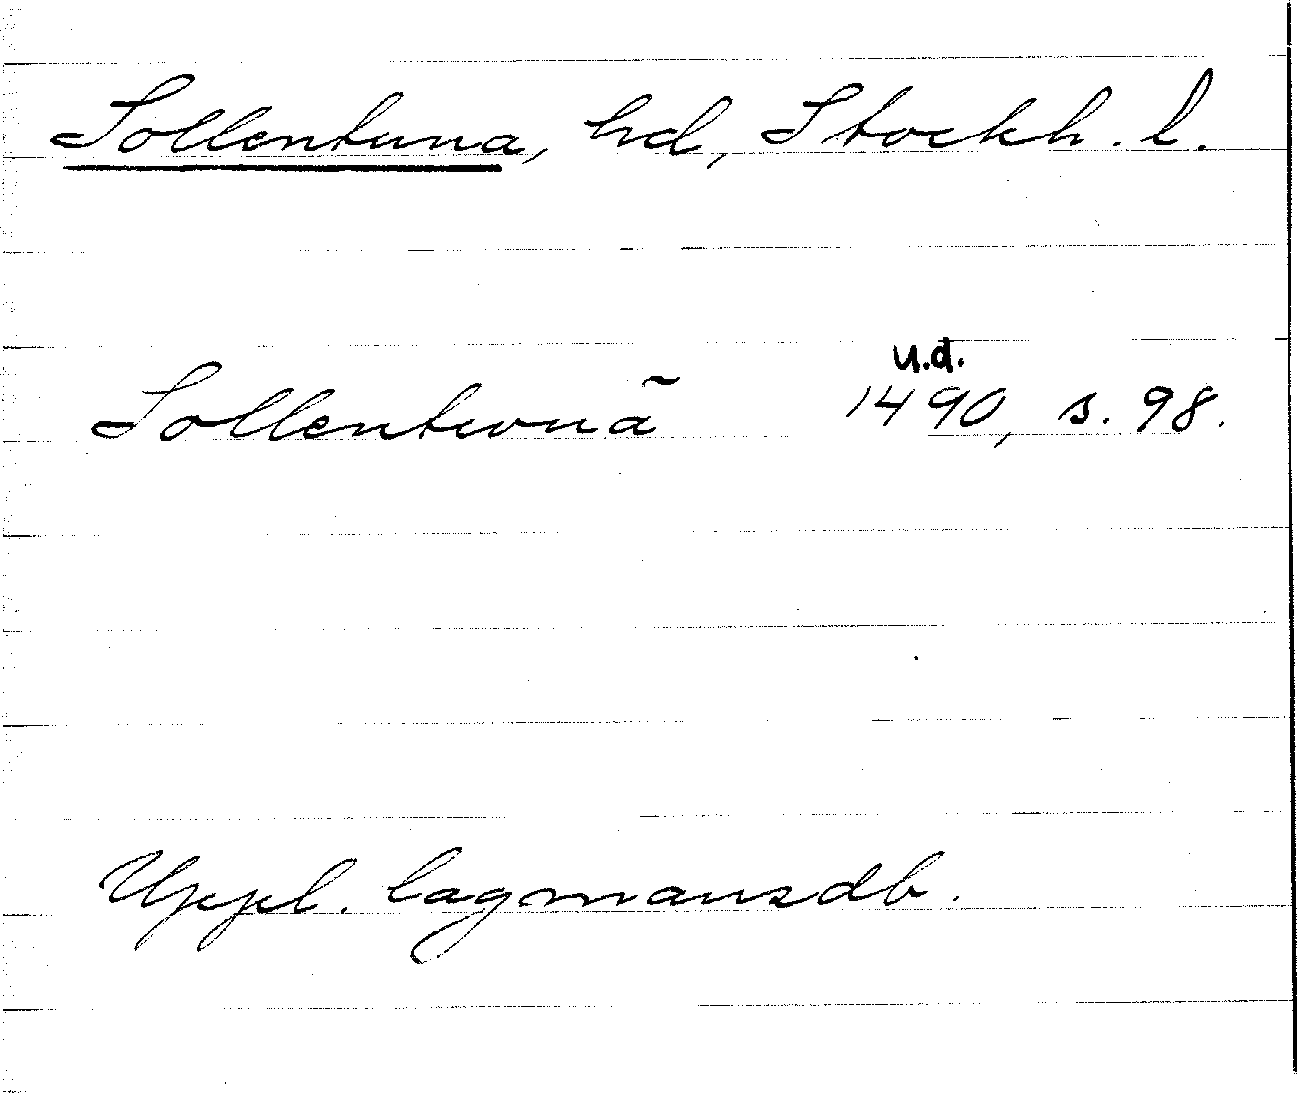 Sollentuna, hd, Stockh. l.
u.d.
Sollentunã 1490, s. 98.
Uppl. lagmansdb.